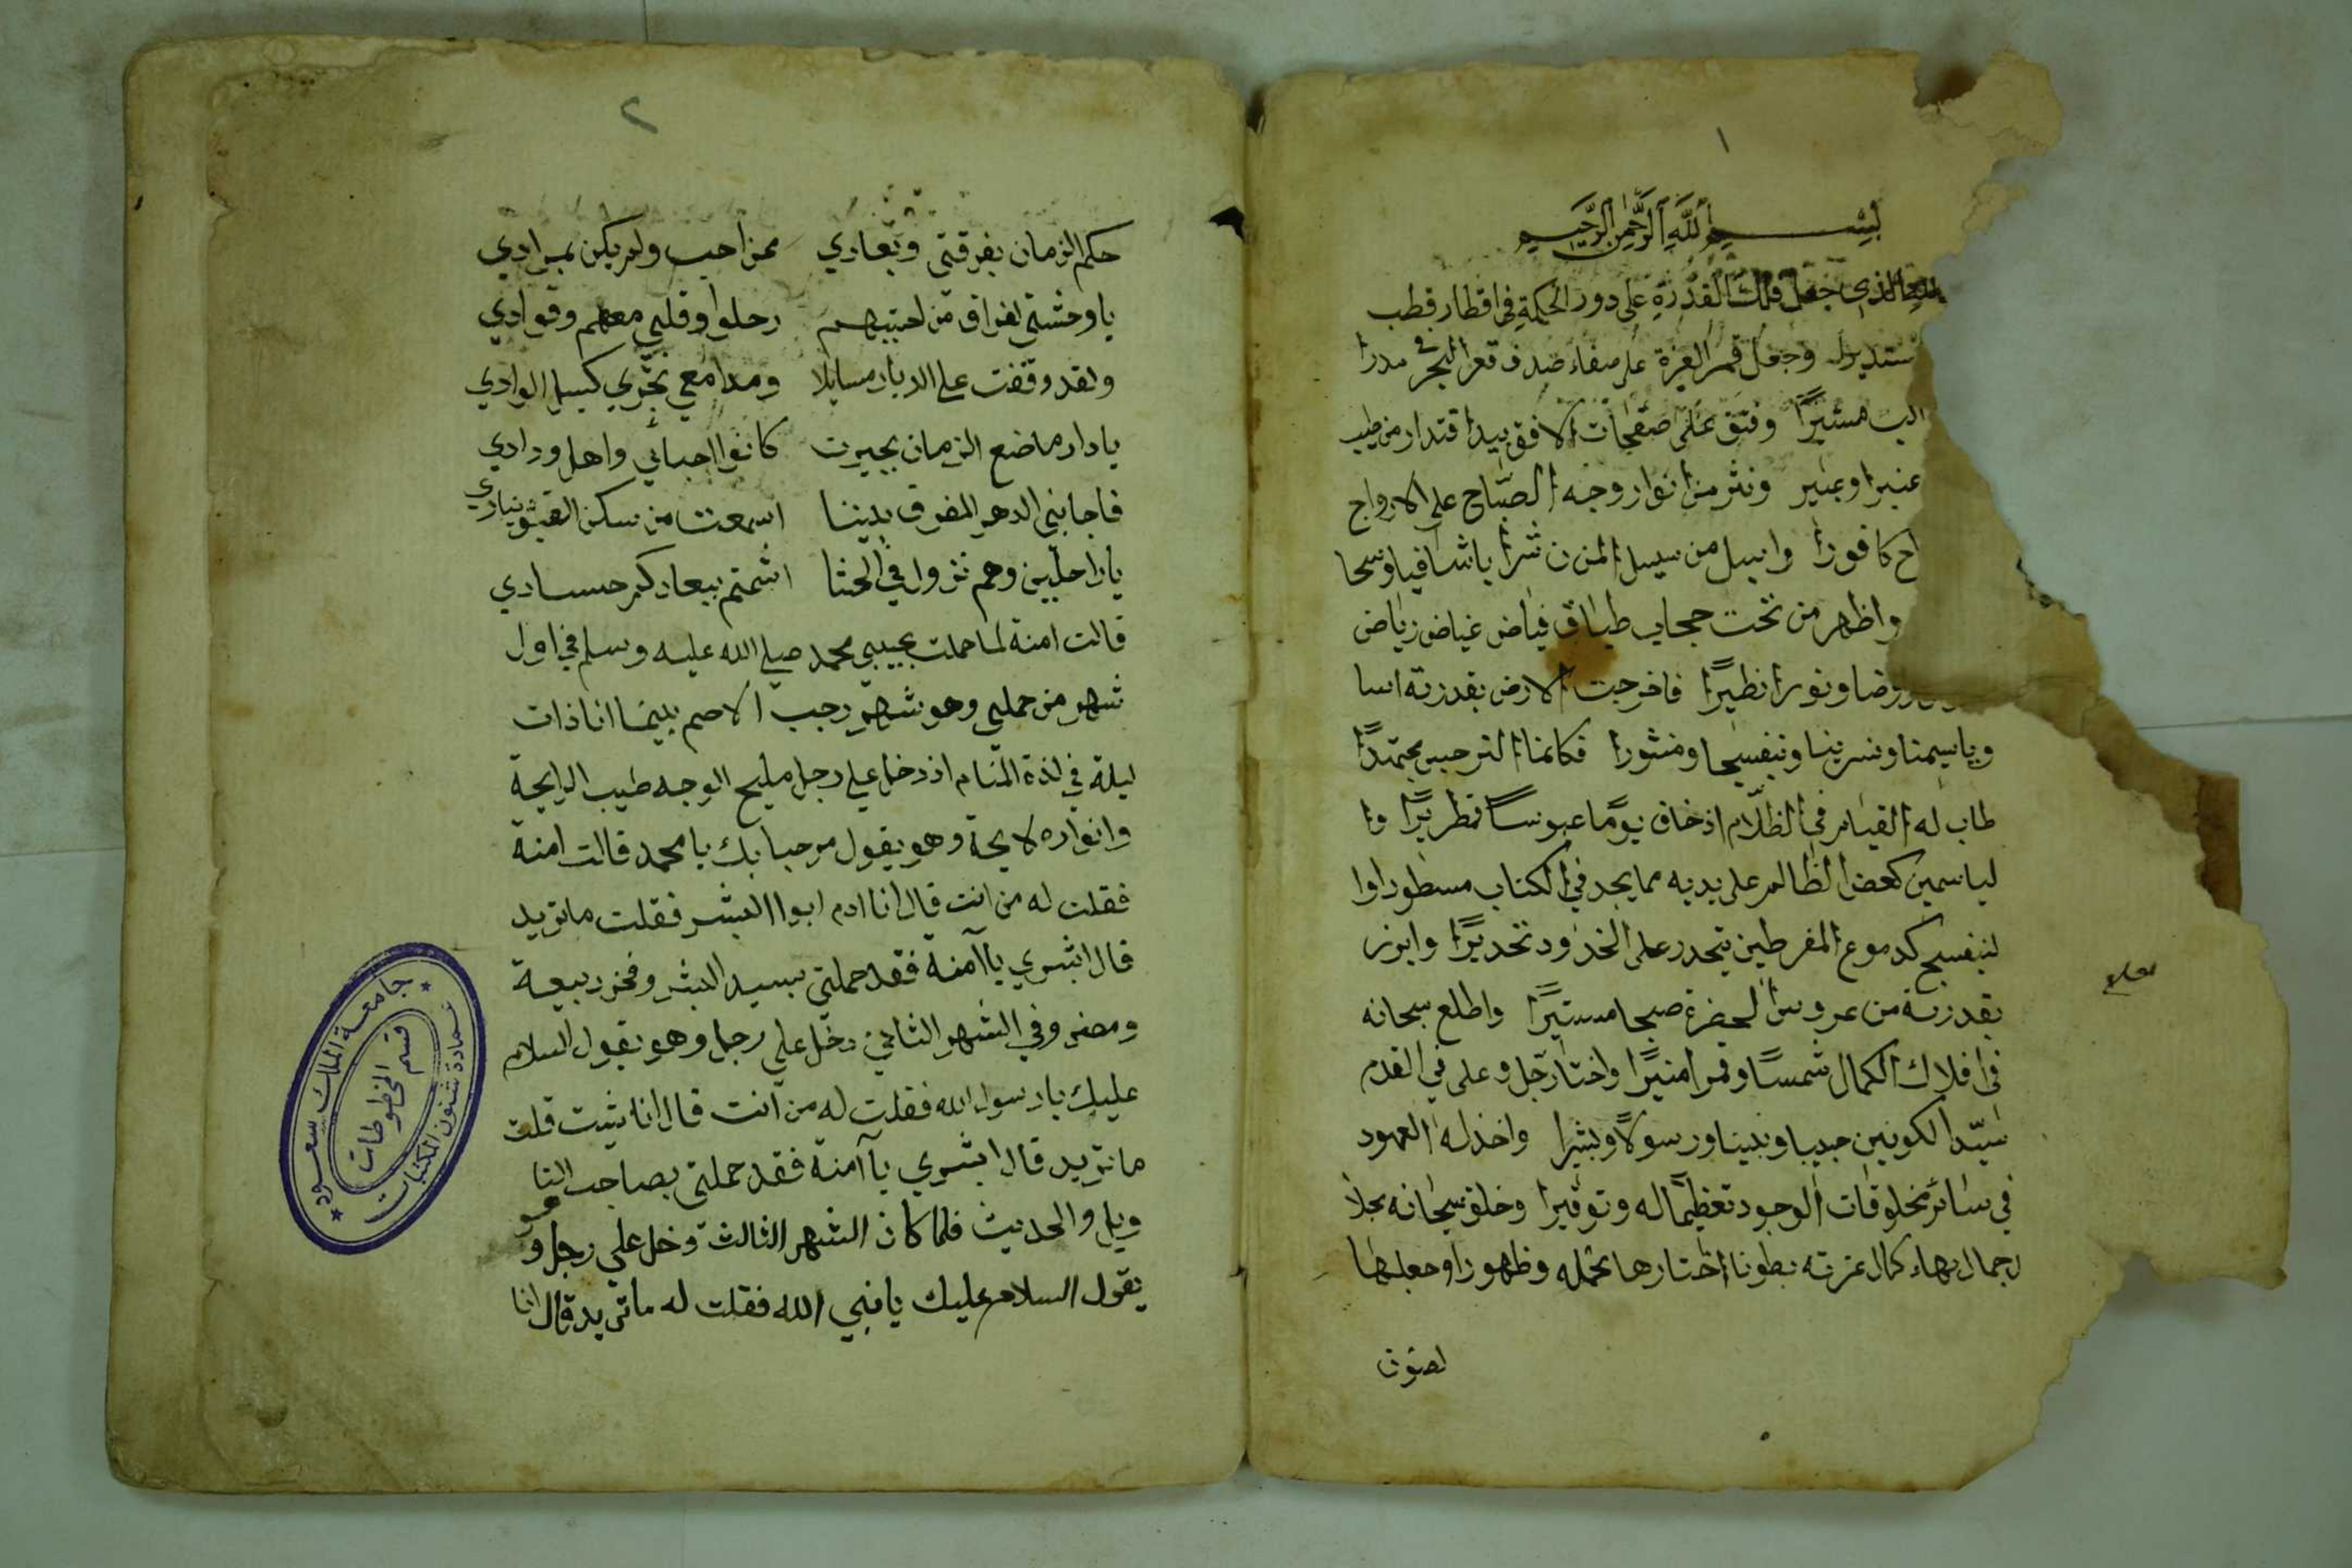 ١
بسم الله الرحمن الرحيم
الذي جعل فلك القدرة على دور الحكمة في اقطار قطب
مستديرا وجعل قمر العزة على صفاء صدف قعر البحر في مدرا
مشيرًا وفتق على صفحات الافق بيد اقتدار من طيب
عنبرا وعبير ونثر من انوار وجه الصباح على الارواح
كافورا واسبل من سيل المزن شرابا شافيا وسحا
واظهر من تحت حجاب طباق فياض غياض رياض
روضا ونورا نظيرًا فاخرجت الارض بقدرته اسا
وياسمينا ونسرينا وبنفسجا ومنثورا فكانما النرجس مجتهدًا
طاب له القيام في الظلام اذ خاف يومًا عبوسًا قمطريرًا وا
لياسمين كعض الظالم على يديه مما يجد في الكتاب مسطورا وا
لبنفسج كدموع المفرطين يتحدر على الخدود تحديرًا وابرز
بقدرته من عروس الحضرة صبحا مستيرًا واطلع سبحانه
في افلاك الكمال شمسًا وقمرا منيرًا واختار جل وعلى في القدم
سيّد الكونين حبيبا ونبينا ورسولًا وبشيرا واخذ له العهود
في سائر مخلوقات الوجود تعظيمًا له وتوقيرا وخلق سبحانه بجلا
لجمال بهاء كمال عزته بطونا اختارها بحمله وظهورا وجعلها
لصون
٢
حكم الزمان بفرقتي وبعادي ممن احب ولم يكن بمرادي
يا وحشتي لفراق من احببتهم رحلوا وقلبي معهم وفوادي
ولقد وقفت على الديار مسايلا ومدامعي تجري كسيل الوادي
يا دار ما صنع الزمان بجيرت كانوا احبائي واهل ودادي
فاجابني الدهر المفرق بيننا اسمعت من سكن القبور ينادي
يا راحلين وهم نزول في الحشا اشمتم ببعادكم حسادي
قالت امنة لما حملت بحبيبي محمد صلى الله عليه وسلم في اول
شهر من حملي وهو شهر رجب الاصم بينما انا ذات
ليلة في لذة المنام اذ دخل علي رجل مليح الوجه طيب الرايحة
وانواره لايحة وهو يقول مرحبا بك يا محمد قالت امنة
فقلت له من انت قال انا ادم ابوا البشر فقلت ما تريد
قال ابشري يا آمنة فقد حملتي بسيد البشر وفخر ربيعة
ومضر وفي الشهر الثاني دخل علي رجل وهو يقول السلام
عليك يا رسول الله فقلت له من انت قال انا شيث قلت
ما تريد قال ابشري يا آمنة فقد حملتي بصاحب التا
ويل والحديث فلما كان الشهر الثالث دخل علي رجل وهو
يقول السلام عليك يا نبي الله فقلت له ما تريد قال انا
جامعة الملك سعود
عمادة شئون المكتبات
قسم المخطوطات